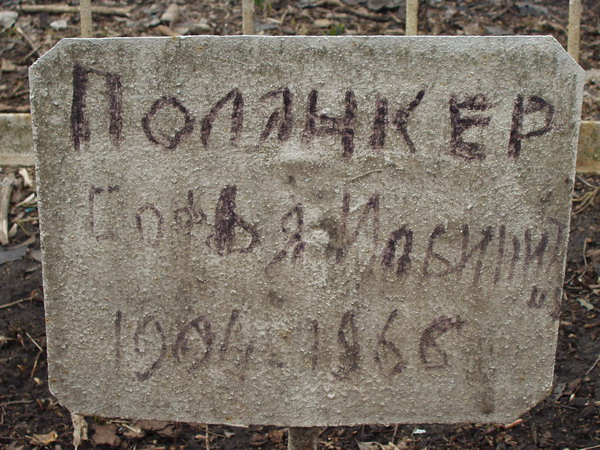 ПОЛЯНКЕР
Софья
1904-1966